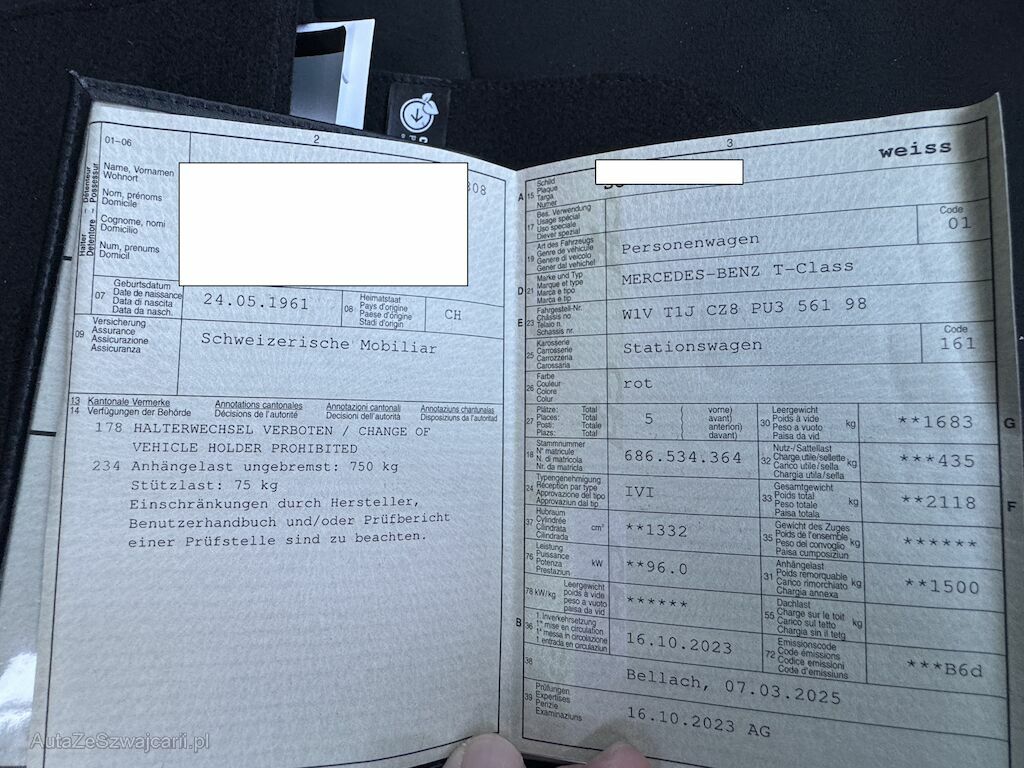 01-06
2
Halter
Detentore
Détenteur
Possessur
Name, Vornamen
Wohnort
Nom, prénoms
Domicile
Cognome, nomi
Domicilio
Num, prenums
Domicil
808
07
Geburtsdatum
Date de naissance
Data di nascita
Data da nasch.
24.05.1961
08
Heimatstaat
Pays d'origine
Paese d'origine
Stadi d'origin
CH
09
Versicherung
Assurance
Assicurazione
Assicuranza
Schweizerische Mobiliar
13 Kantonale Vermerke
14 Verfügungen der Behörde
Annotations cantonales
Décisions de l'autorité
Annotazioni cantonali
Decisioni dell'autorità
Annotaziuns chantunalas
Disposiziuns da l'autoritad
178 HALTERWECHSEL VERBOTEN / CHANGE OF
VEHICLE HOLDER PROHIBITED
234 Anhängelast ungebremst: 750 kg
Stützlast: 75 kg
Einschränkungen durch Hersteller,
Benutzerhandbuch und/oder Prüfbericht
einer Prüfstelle sind zu beachten.
3
weiss
A 15
Schild
Plaque
Targa
Numer
17
Bes. Verwendung
Usage spécial
Uso speciale
Diever spezial
Code
01
19
Art des Fahrzeugs
Genre de véhicule
Genere di veicolo
Gener dal vehichel
Personenwagen
D 21
Marke und Typ
Marque et type
Marca e tipo
Marca e tip
MERCEDES-BENZ T-Class
E 23
Fahrgestell-Nr.
Châssis no
Telaio n.
Schassis nr.
W1V T1J CZ8 PU3 561 98
25
Karosserie
Carrosserie
Carrozzeria
Carossaria
Stationswagen
Code
161
26
Farbe
Couleur
Colore
Colur
rot
27
Plätze: Total
Places: Total
Posti: Totale
Plazs: Total
5
( vorne)
( avant)
( anteriori)
( davant)
30
Leergewicht
Poids à vide
Peso a vuoto
Paisa da vid
kg
**1683
G
18
Stammnummer
N° matricule
N. di matricola
Nr. da matricla
686.534.364
32
Nutz-/Sattellast
Charge utile/sellette
Carico utile/sella
Chargia utila/sella
kg
***435
24
Typengenehmigung
Réception par type
Approvazione del tipo
Approvaziun dal tip
IVI
33
Gesamtgewicht
Poids total
Peso totale
Paisa totala
kg
**2118
F
37
Hubraum
Cylindrée
Cilindrata
Cilindrada
cm³
**1332
35
Gewicht des Zuges
Poids de l'ensemble
Peso del convoglio
Paisa cumposiziun
kg
******
76
Leistung
Puissance
Potenza
Prestaziun
kW
**96.0
31
Anhängelast
Poids remorquable
Carico rimorchiato
Chargia annexa
kg
**1500
78 kW/kg
Leergewicht
poids à vide
peso a vuoto
paisa da vid
******
55
Dachlast
Charge sur le toit
Carico sul tetto
Chargia sin il tetg
kg
B 36
1. Inverkehrsetzung
1re mise en circulation
1a messa in circolazione
1. entrada en circulaziun
16.10.2023
72
Emissionscode
Code émissions
Codice emissioni
Code d'emissiuns
***B6d
38
Bellach, 07.03.2025
39
Prüfungen
Expertises
Perizie
Examinaziuns
16.10.2023 AG
AutaZeSzwajcarii.pl